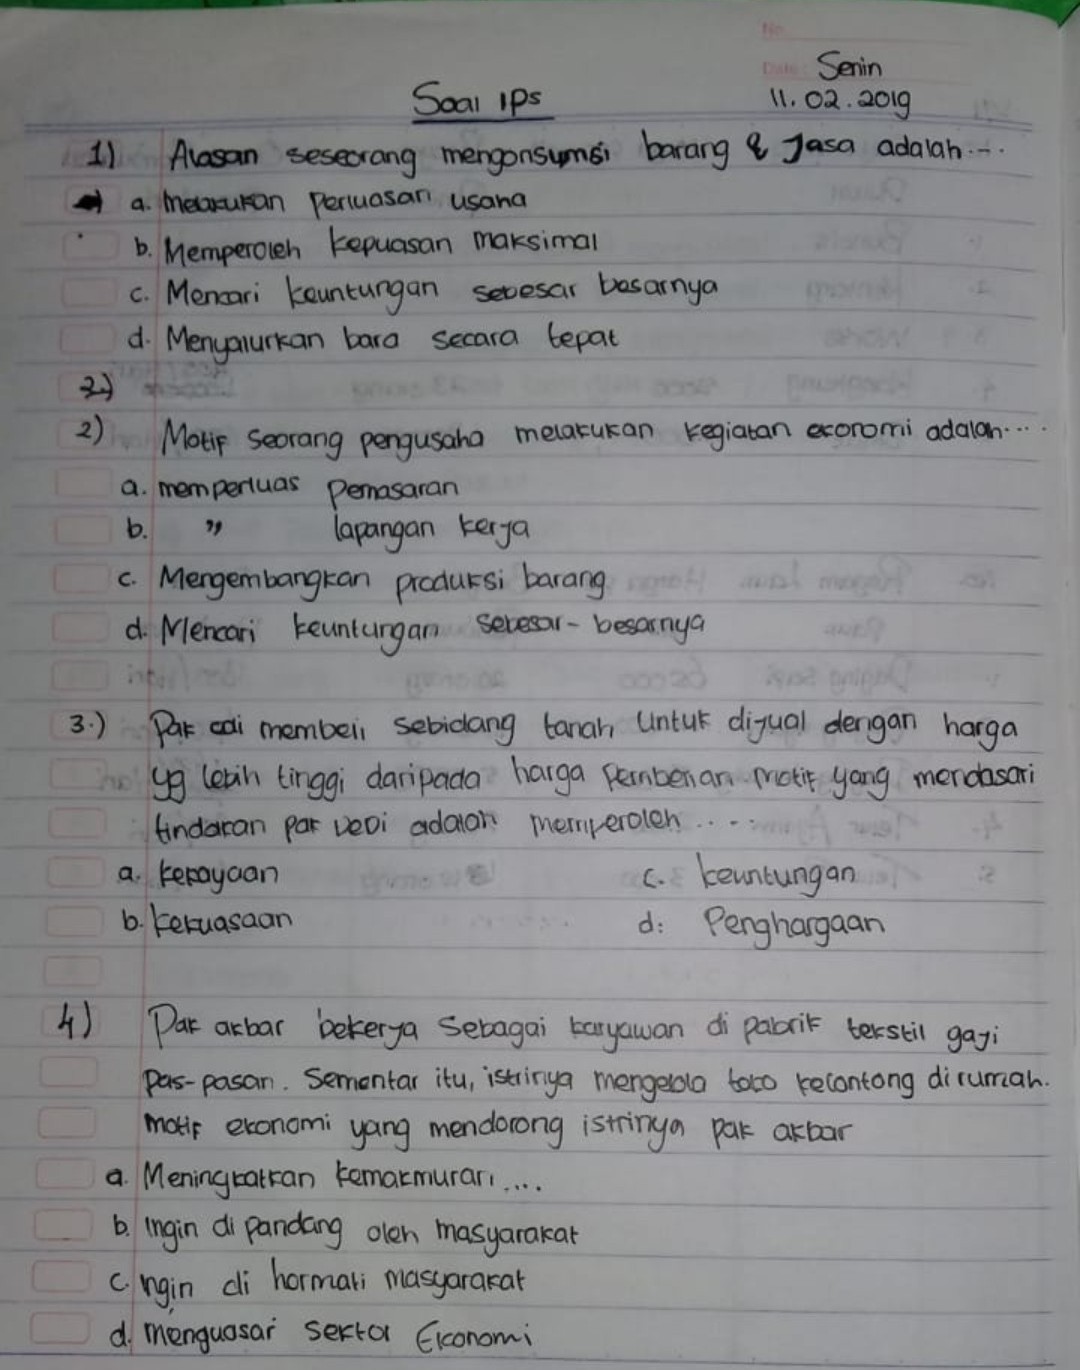 No
Date: Senin
Soal IPS 11.02.2019
1) Alasan seseorang mengonsumsi barang & Jasa adalah....
a. melakukan perluasan usaha
b. Memperoleh kepuasan maksimal
c. Mencari keuntungan sebesar besarnya
d. Menyalurkan bara secara tepat
2)
2) Motif seorang pengusaha melakukan kegiatan ekonomi adalah....
a. memperluas pemasaran
b. " lapangan kerja
c. Mengembangkan produksi barang
d. Mencari keuntungan sebesar-besarnya
3.) Pak edi membeli sebidang tanah untuk dijual dengan harga
yg lebih tinggi daripada harga pembelian motif yang mendasari
tindakan pak adalah memperoleh.....
a. kekayaan c. keuntungan
b. kekuasaan d. Penghargaan
4) Pak akbar bekerja sebagai karyawan di pabrik tekstil gaji
pas-pasan. Sementar itu, istrinya mengelola toko kelontong dirumah.
motif ekonomi yang mendorong istrinya pak akbar
a. Meningkatkan kemakmuran....
b. Ingin di pandang oleh masyarakat
c. ingin di hormati masyarakat
d. menguasai sektor Ekonomi